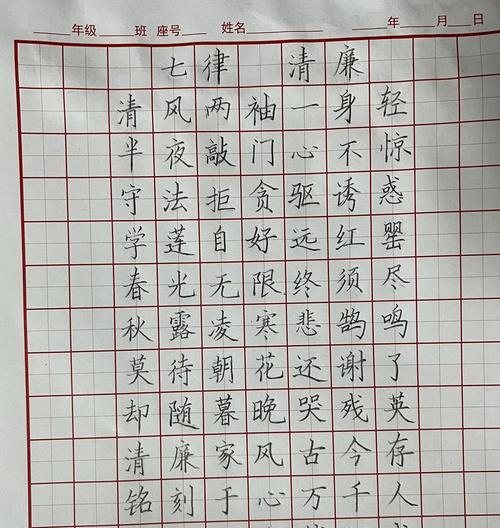 年级 班 座号 姓名 年 月 日
七律 清廉
清风两袖一身轻
半夜敲门心不惊
守法拒贪驱诱惑
学莲自好远红罂
春光无限终须尽
秋露凌寒悲鹄鸣
莫待朝花还谢了
却随暮晚哭残英
清廉家风古今存
铭刻于心万千人